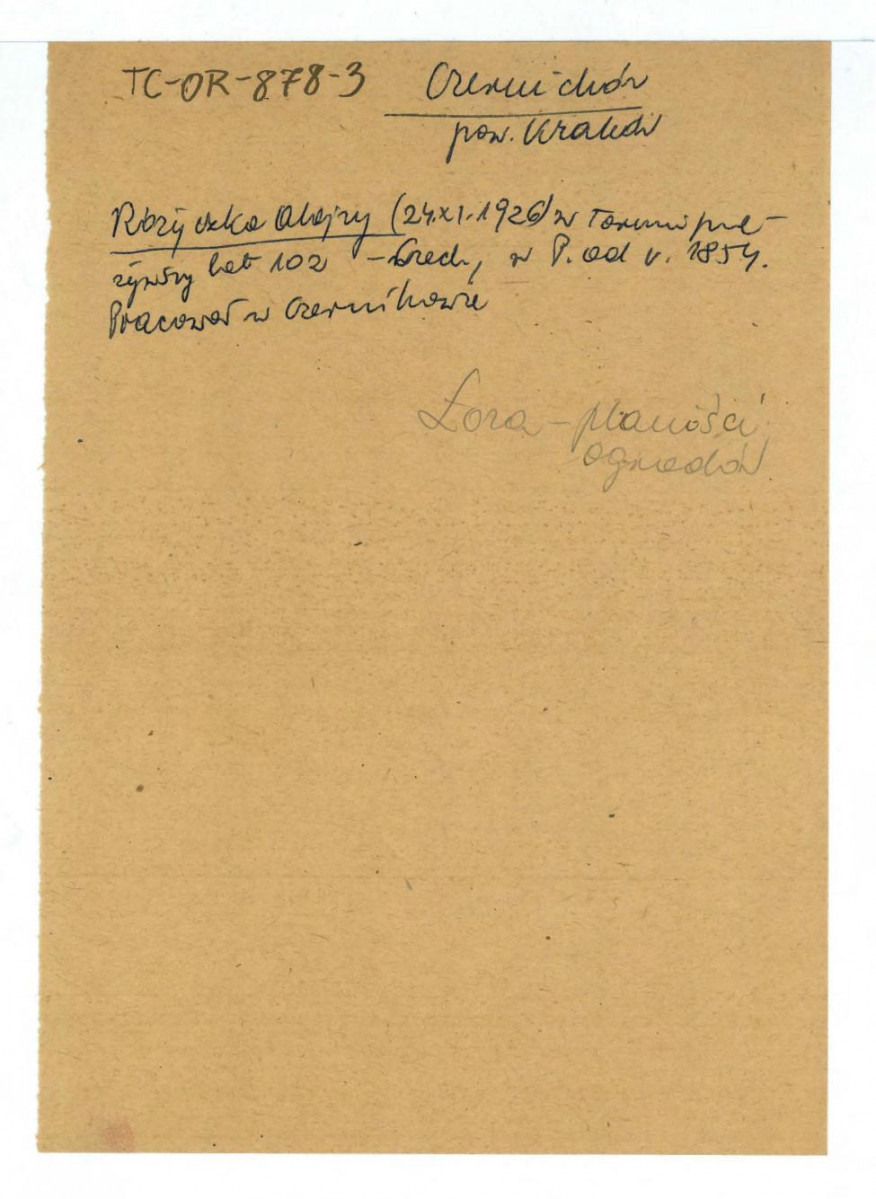 TC-OR-878-3 Czernichów
pow. Kraków
Różyczka Alojzy (24.XI.1926) w Toruniu prze-
żywszy lat 102 - Czech, w P. od r. 1854.
Pracował w Czernikowie
Łoza - plantości
ogrodów